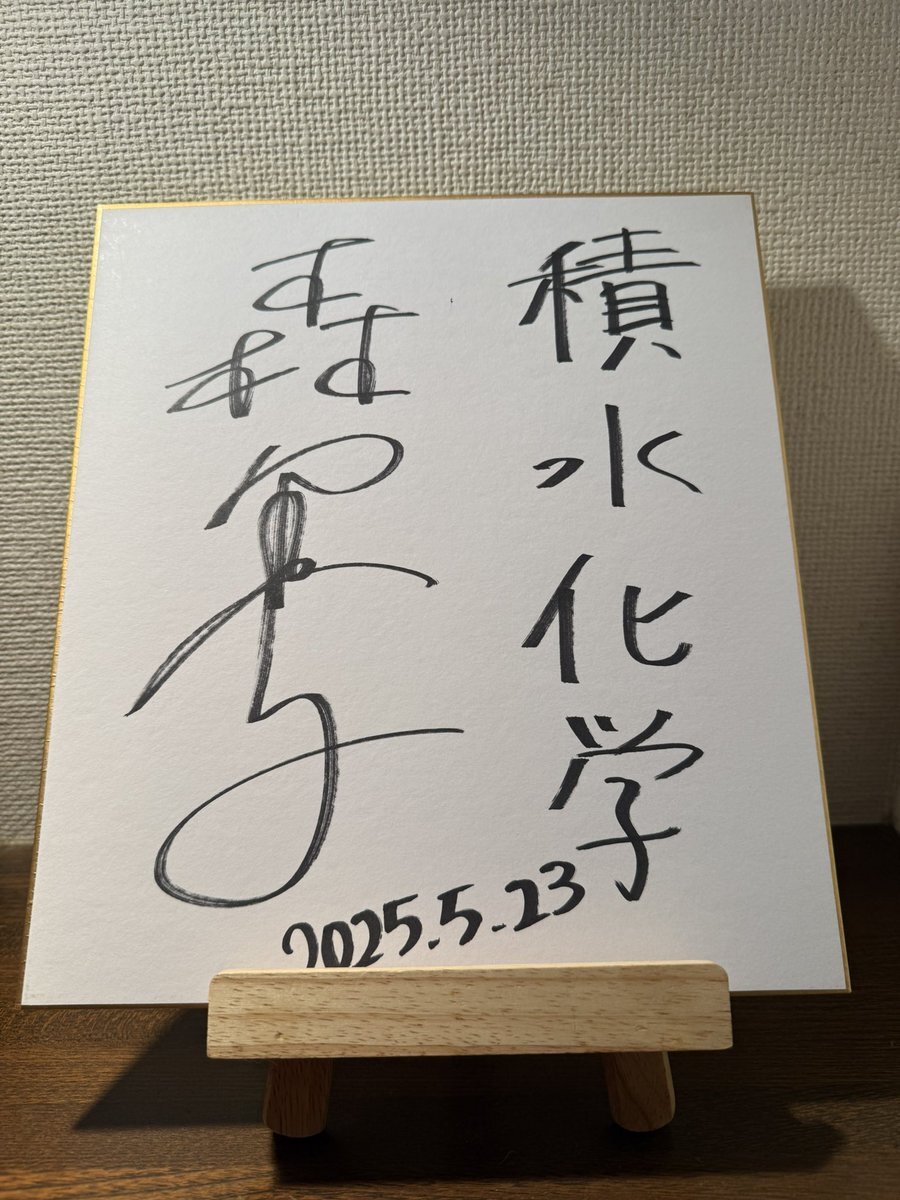 積水化学
森智子
2025.5.23